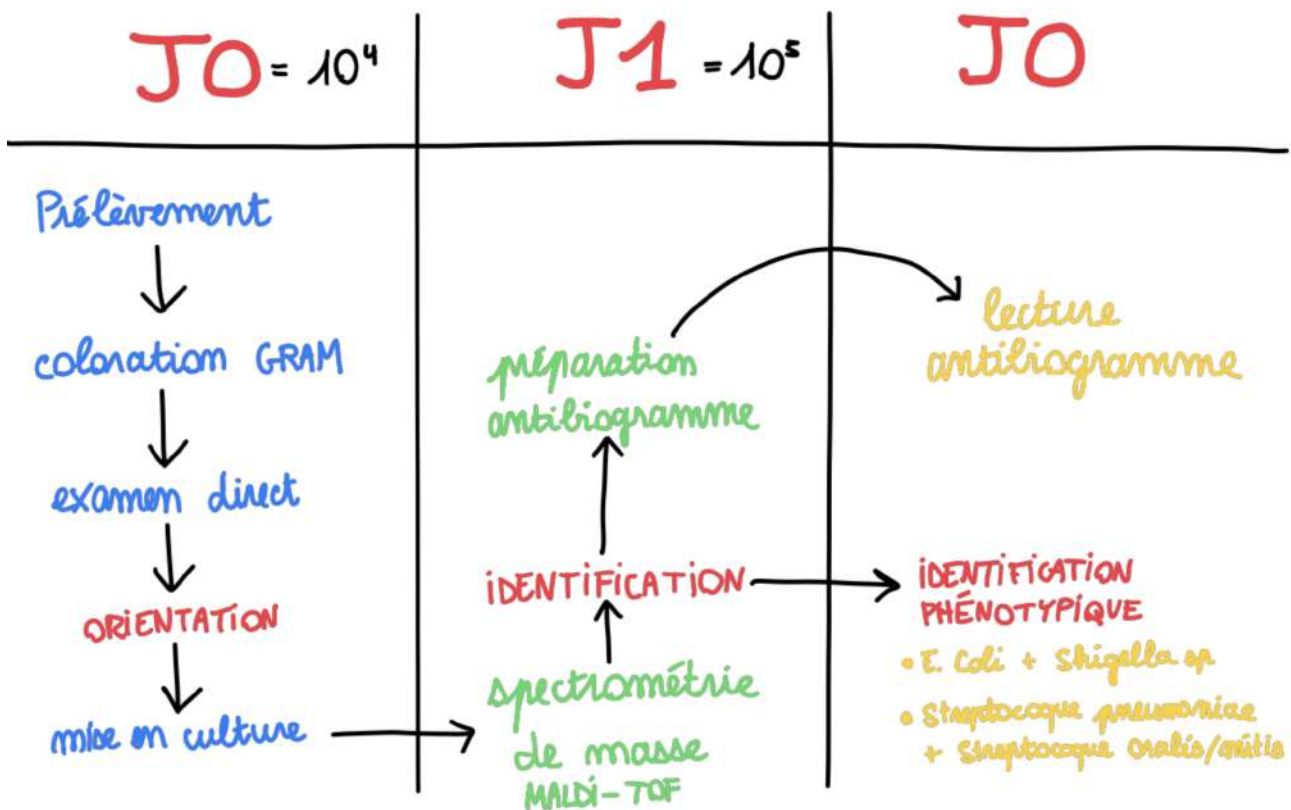 J0 = 10⁴
J1 = 10⁵
J0
Prélèvement
coloration GRAM
examen direct
ORIENTATION
mise en culture
préparation
antibiogramme
IDENTIFICATION
spectrométrie
de masse
MALDI-TOF
lecture
antibiogramme
IDENTIFICATION
PHÉNOTYPIQUE
• E. Coli + Shigella sp
• Streptocoque pneumoniae
+ Streptocoque Oralis/mitis